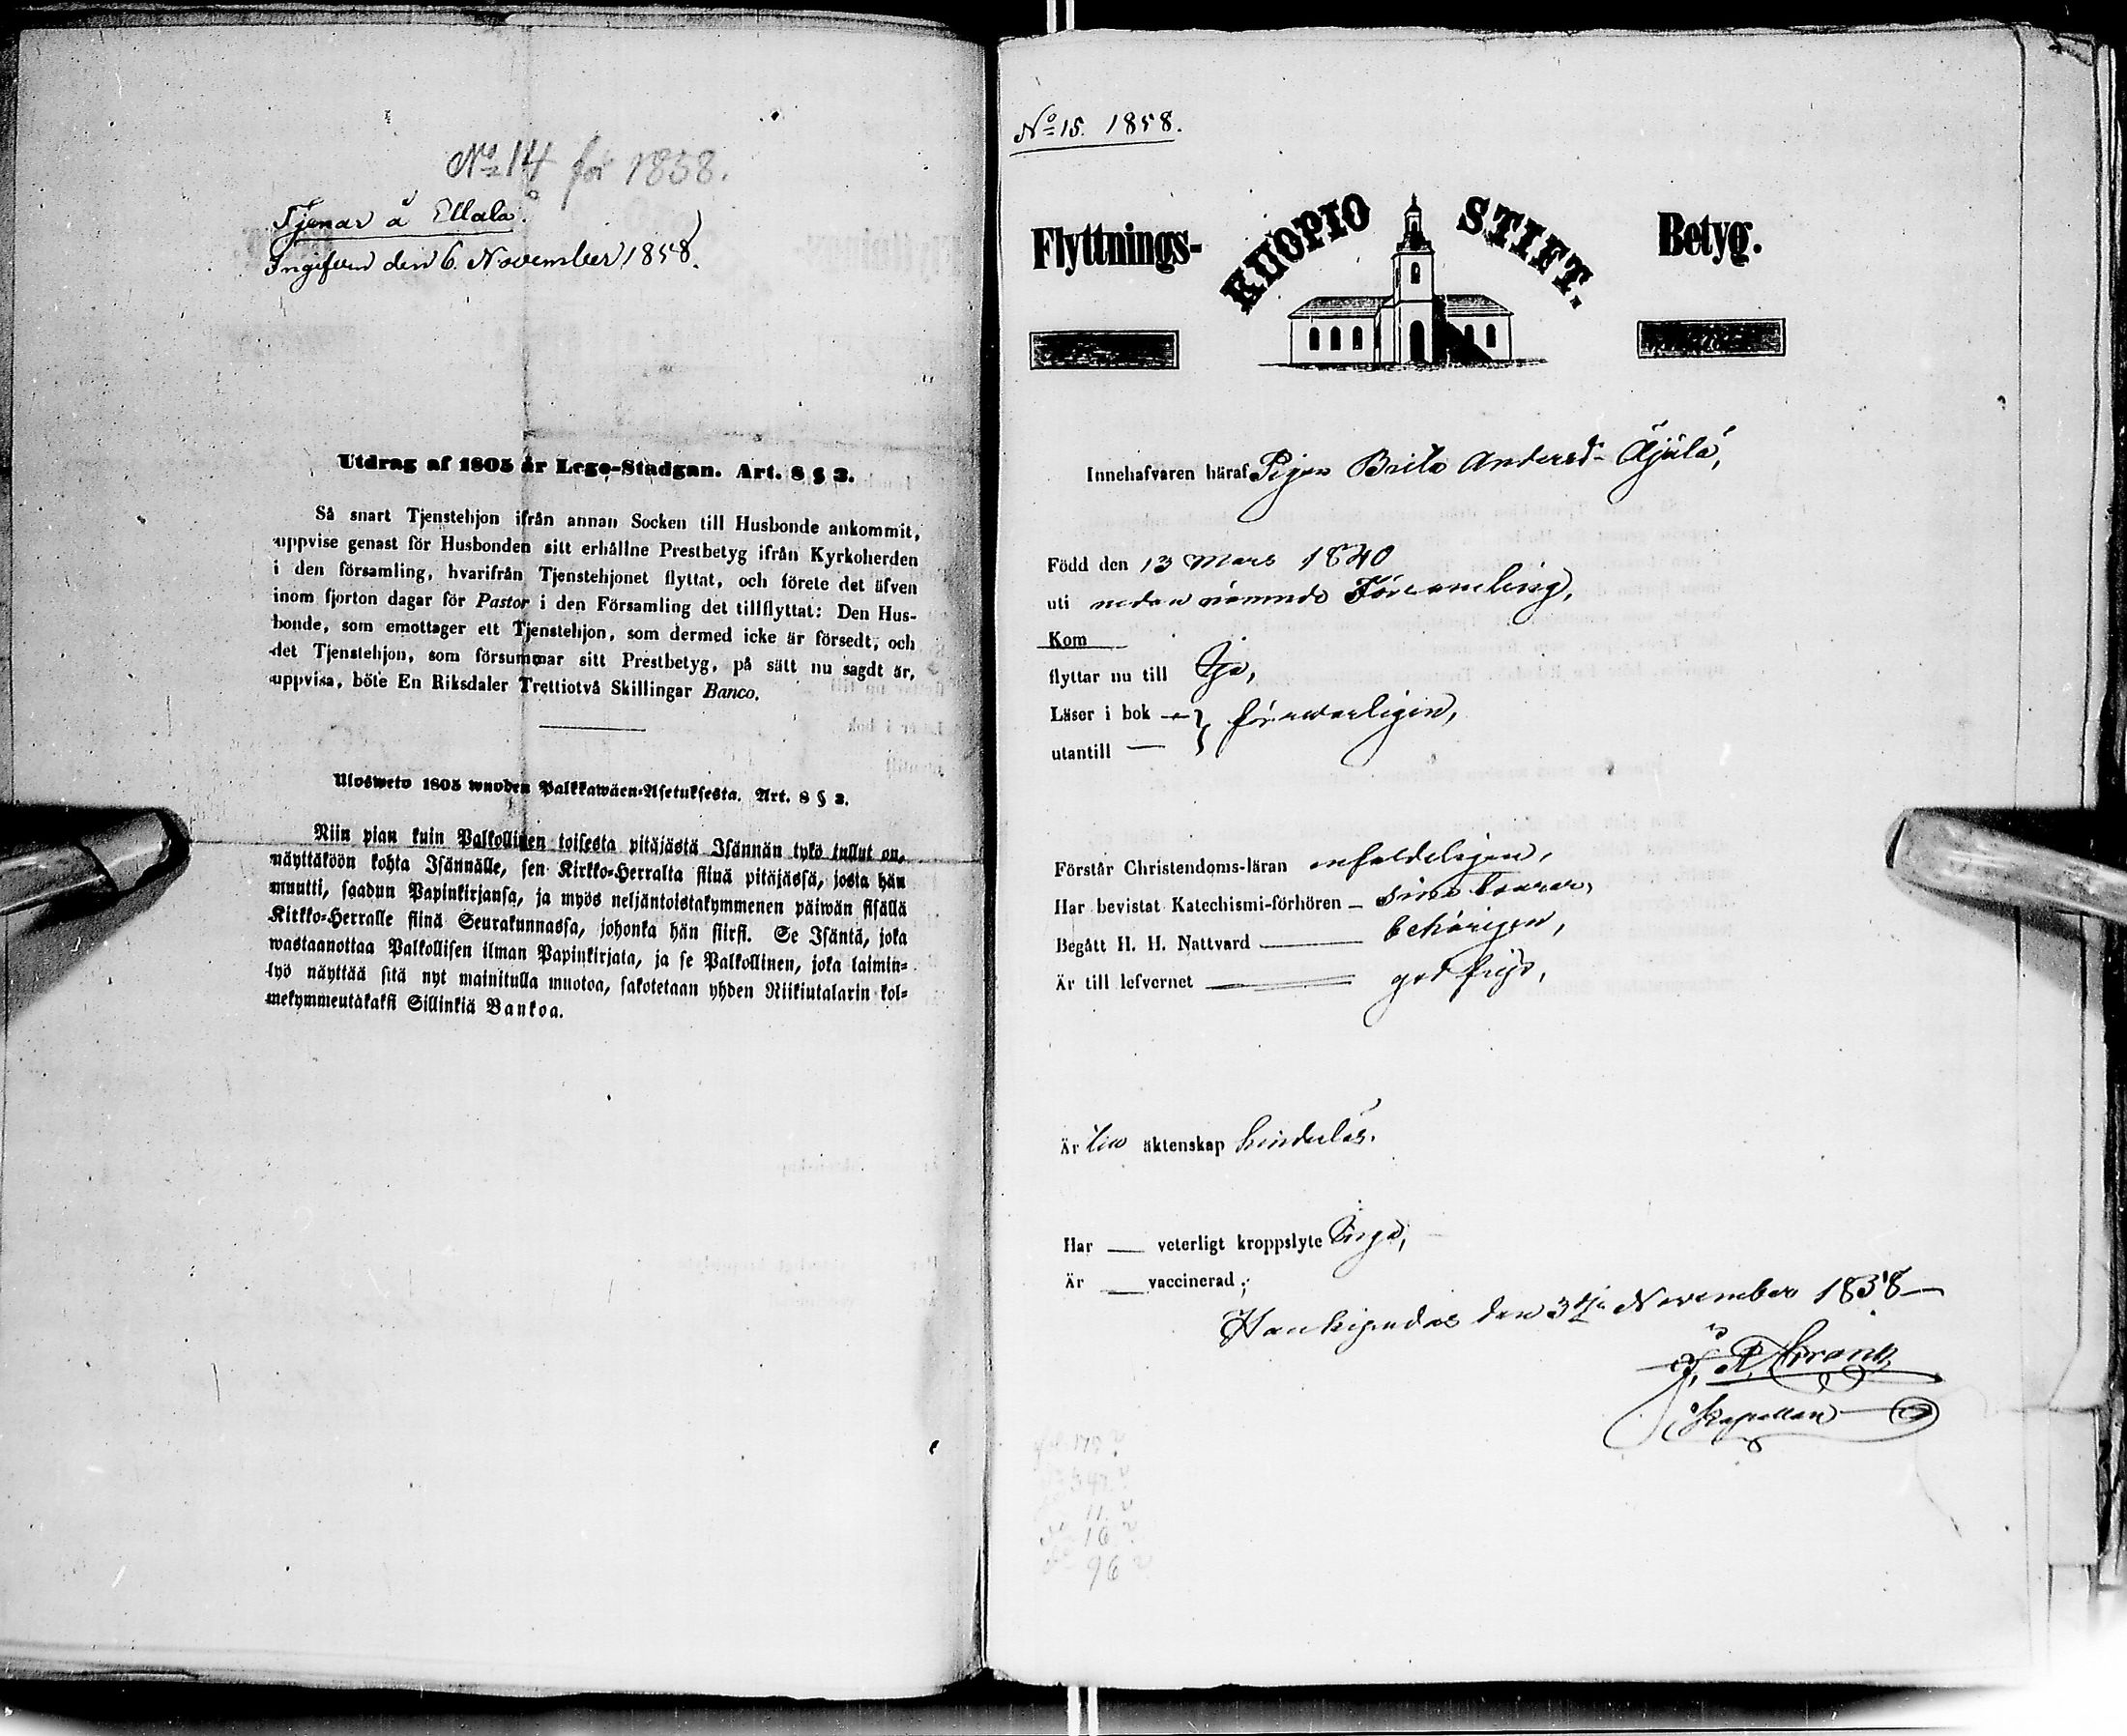 No 14 för 1858.
Tjenar å Ellala.
Ingifven den 6. November 1858.
Utdrag af 1805 år Lego-Stadgan. Art. 8 § 3.
Så snart Tjenstehjon ifrån annan Socken till Husbonde ankommit,
uppvise genast för Husbonden sitt erhållne Prestbetyg ifrån Kyrkoherden
i den församling, hvarifrån Tjenstehjonet flyttat, och förete det äfven
inom fjorton dagar för Pastor i den Församling det tillflyttat: Den Hus-
bonde, som emottager ett Tjenstehjon, som dermed icke är försedt, och
det Tjenstehjon, som försummar sitt Prestbetyg, på sätt nu sagdt är,
uppvisa, böte En Riksdaler Trettiotvå Skillingar Banco.
Ulosweto 1805 wuoden Palkkawäen-Asetuksesta. Art. 8 § 3.
Niin pian kuin Palkollinen toisesta pitäjästä Isännän tykö tullut on,
näyttäköön kohta Isännälle, sen Kirkko-Herralta siinä pitäjässä, josta hän
muutti, saadun Papinkirjansa, ja myös neljäntoistakymmenen päiwän sisällä
Kirkko-Herralle siinä Seurakunnassa, johonka hän siirsi. Se Isäntä, joka
wastaanottaa Palkollisen ilman Papinkirjata, ja se Palkollinen, joka laimin-
lyö näyttää sitä nyt mainitulla muotoa, sakotetaan yhden Riikiutalarin kol-
mekymmeutäkaksi Sillinkiä Bankoa.
No 15. 1858.
Flyttnings- KUOPIO STIFT. Betyg.
Innehafvaren häraf Pigan Brita Andersd. Äijälä,
Född den 13 Mars 1840
uti nedannämnde Församling,
Kom
flyttar nu till Ijo,
Läser i bok — } försvarligen,
utantill —
Förstår Christendoms-läran enfaldeligen,
Har bevistat Katechismi-förhören — sina
Begått H. H. Nattvard — behörigen,
Är till lefvernet — god frejd,
Är till äktenskap hinderlös.
Har — veterligt kroppslyte Inga,
Är — vaccinerad;
Haukipudas den 3dje November 1858
J. R. Cranck
Kapellan
11.
16
96